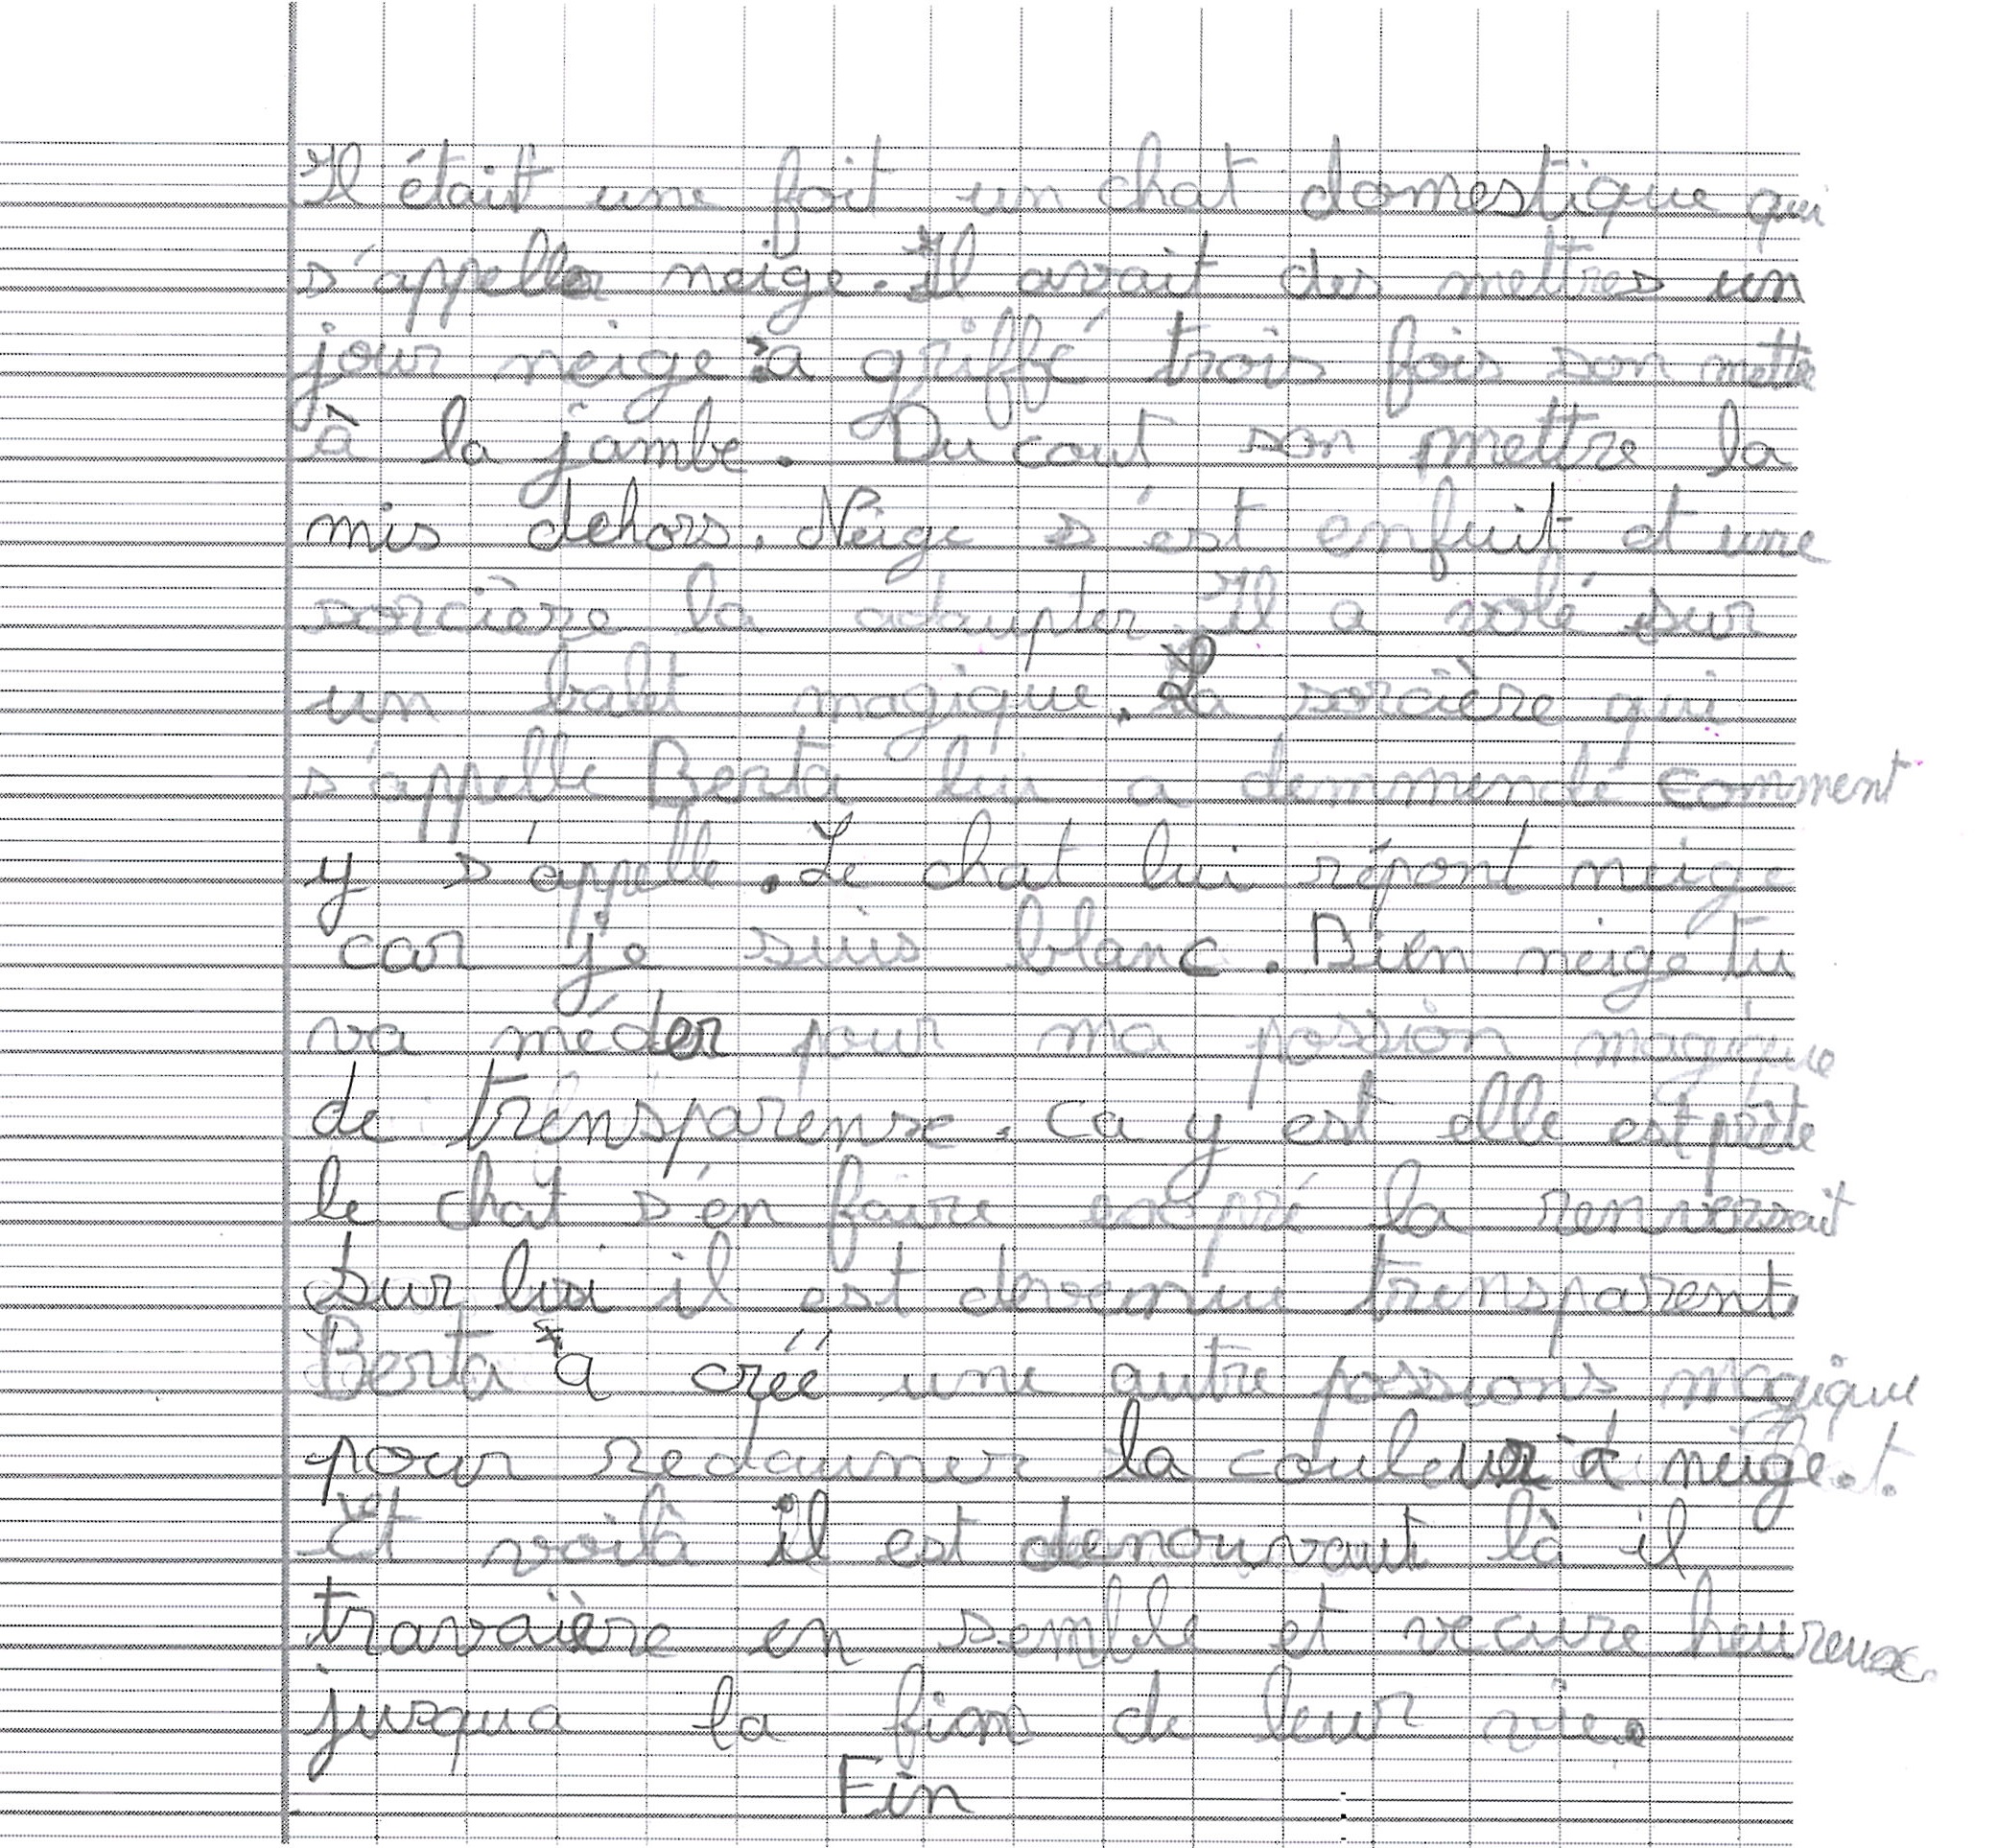 Il était une foit un chat domestique qui
s'appelle neige. Il avait des mettres un
jour neige a griffé trois fois son mettre
à la jambe. Du cout son mettre la
mis dehors. Neige s'est enfuit et une
sorcière la adaupter Il a volé sur
un balet magique. La sorcière qui
s'appelle Berta lui a demmendé comment
y s'appelle. Le chat lui répont neige
car je suis blanc. Bien neige tu
va méder pour ma possion magique
de trensparense. ca y est elle est prète
le chat s'en faire expré la renversait
sur lui il est devenue trensparent
Berta a créé une autre possions magique
pour redauner la couleur a neige.
Et voilà il est denouvaut là il
travaière en semble et vecure heureux
jusqua la fim de leur vie.
Fin